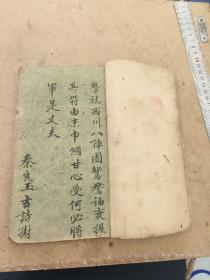 學就西川八陣圖鴛鴦袖裏握
兵符由來巾幗甘心受何必將
軍是丈夫
秦良玉古詩